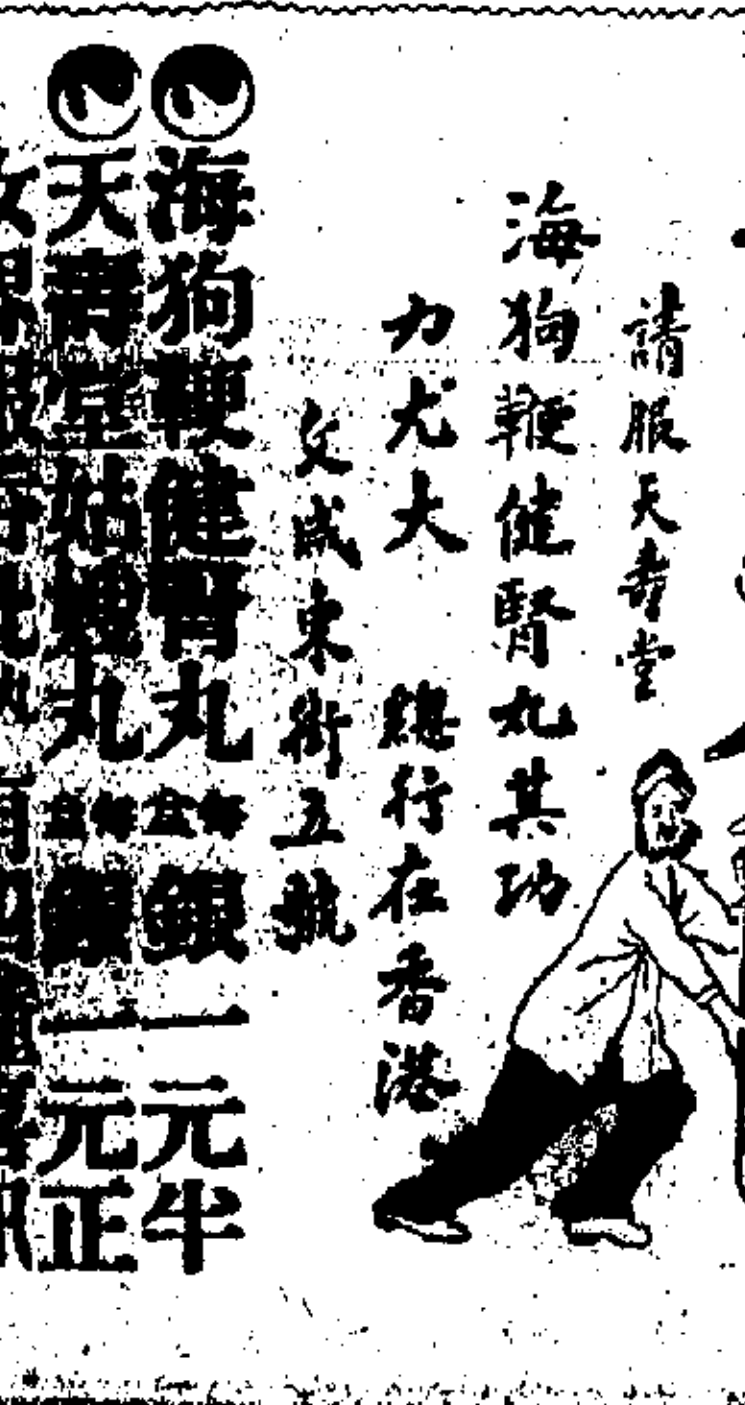 請服天壽堂
海狗鞭健腎丸其功
力尤大 總行在香港
文咸東街五號
海狗鞭健腎丸每盒銀一元半
天壽堂姑嫂丸每盒銀一元正